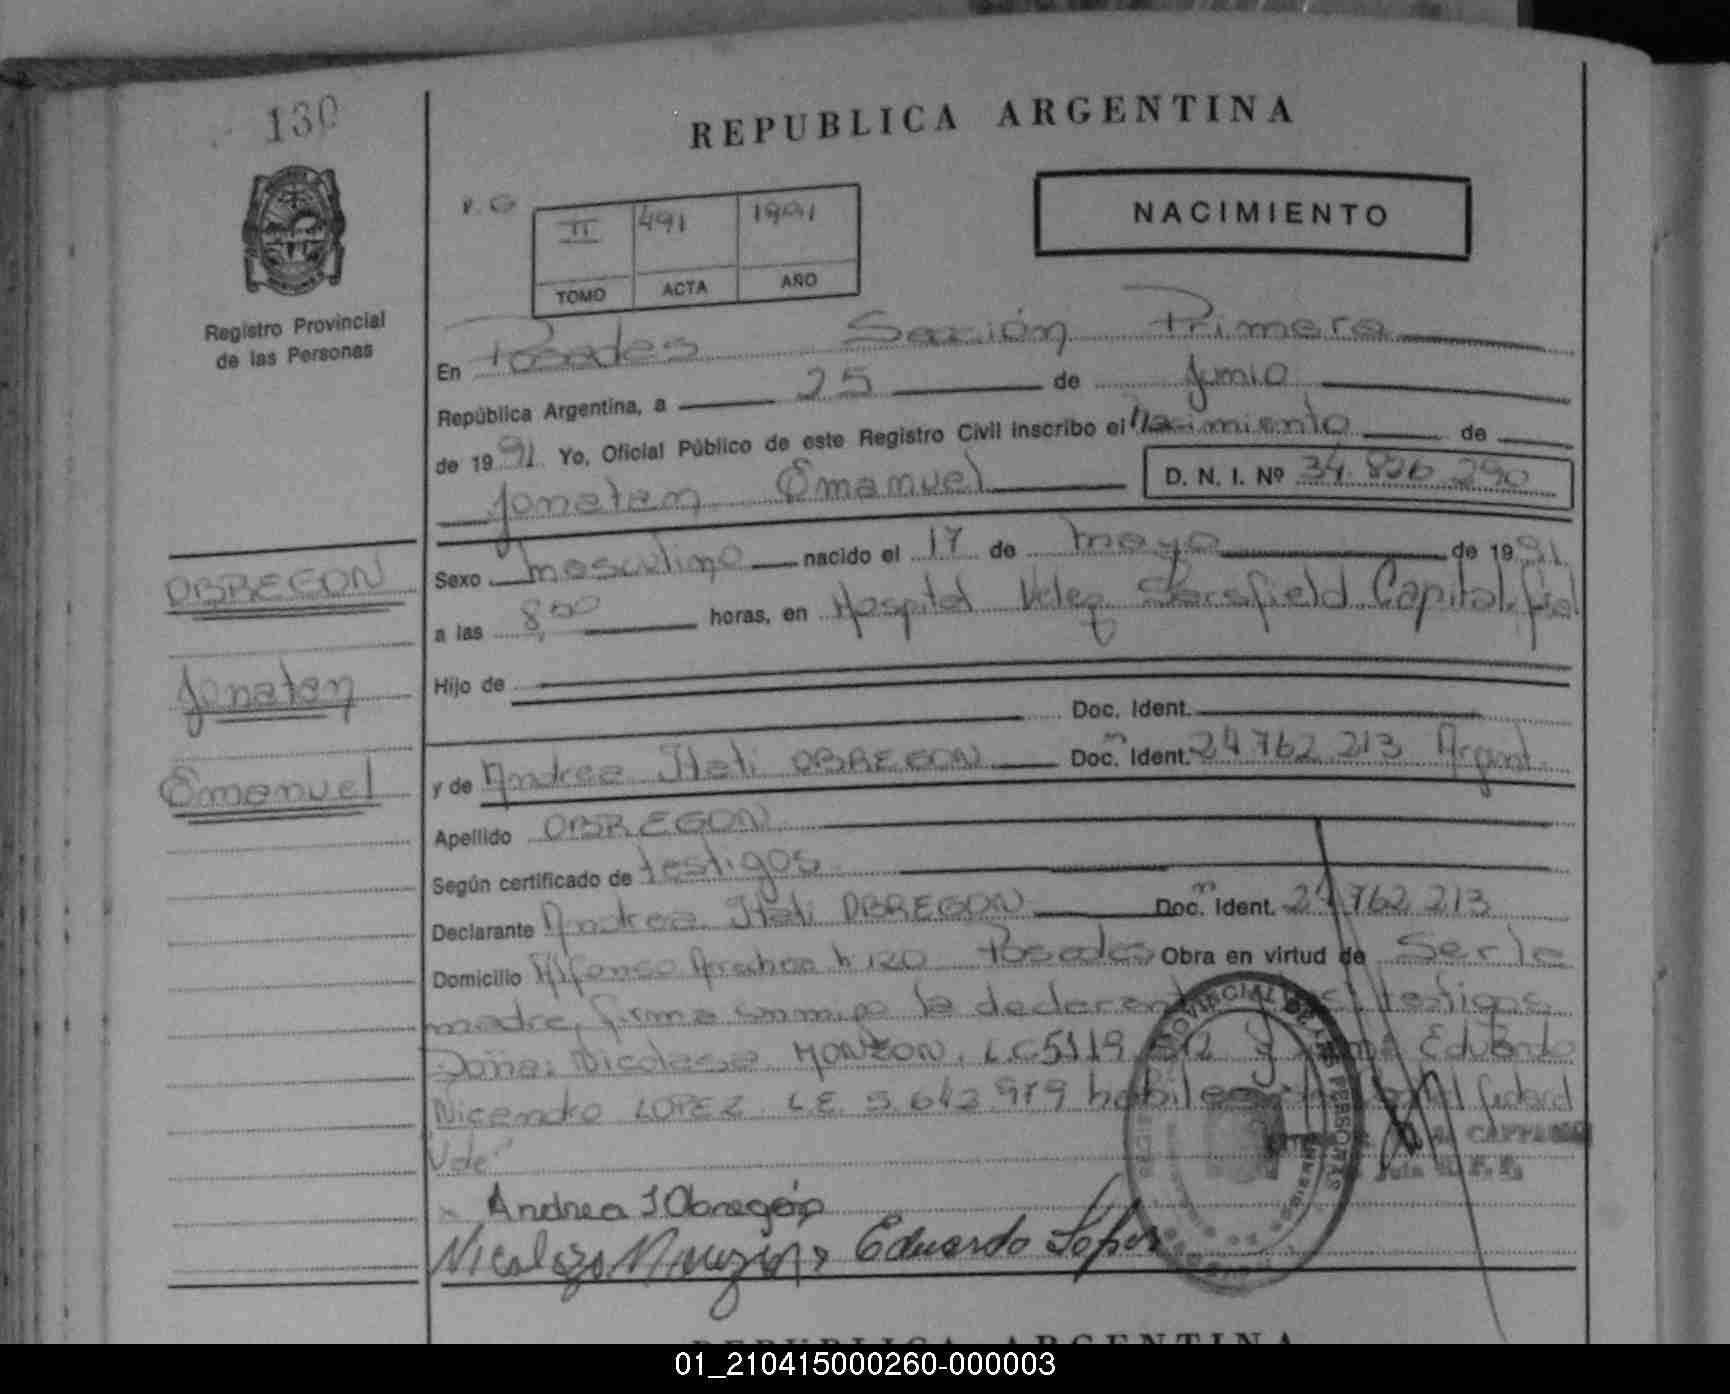 130
REPUBLICA ARGENTINA
Registro Provincial
de las Personas
V. G
II 491 1991
TOMO ACTA AÑO
NACIMIENTO
En Posadas Sección Primera
República Argentina, a 25 de Junio
de 1991 Yo, Oficial Público de este Registro Civil inscribo el Nacimiento de
Jonatan Emanuel D. N. I. Nº 34.826.290
OBREGON
Jonatan
Emanuel
Sexo masculino nacido el 17 de mayo de 1991
a las 8,00 horas, en Hospital Velez Sarsfield Capital. fed
Hijo de
Doc. Ident.
y de Andrea Itati OBREGON Doc. Ident. 24 762 213 Argent.
Apellido OBREGON
Según certificado de testigos
Declarante Andrea Itati OBREGON Doc. Ident. 24 762 213
Domicilio Alfonso h 120 Posadas Obra en virtud de Ser la
madre, firma conmigo la declarante testigos
Doña: Nicolasa MONZON, L.C 5119 y Eduardo
Nicandro LOPEZ L.E 5.642.979 habiles federal
Vale
Andrea I Obregón
Nicolasa Monzon, Eduardo Lopez
REPUBLICA ARGENTINA
01_210415000260-000003